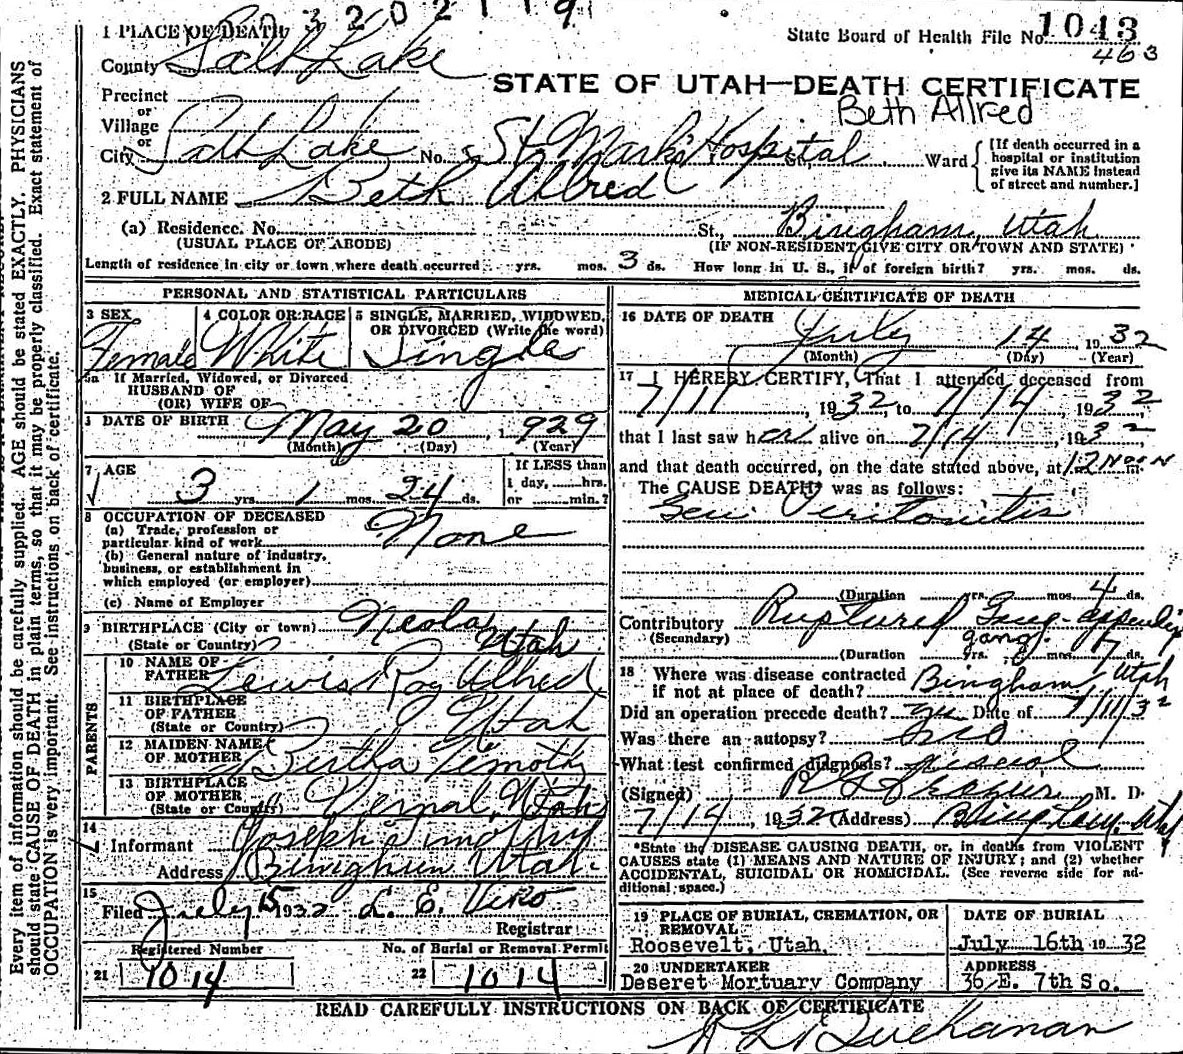 1043
State Board of Health File No.
463
1 PLACE OF DEATH
County Salt Lake
STATE OF UTAH—DEATH CERTIFICATE
Beth Allred
Precinct
or
Village
or
City Salt Lake No. St. Mark's Hospital St., Ward
[If death occurred in a hospital or institution give its NAME instead of street and number.]
2 FULL NAME Beth Allred
(a) Residence. No. St., Bingham, Utah
(USUAL PLACE OF ABODE) (IF NON-RESIDENT GIVE CITY OR TOWN AND STATE)
Length of residence in city or town where death occurred yrs. mos. 3 ds. How long in U. S., if of foreign birth? yrs. mos. ds.
PERSONAL AND STATISTICAL PARTICULARS
3 SEX Female
4 COLOR OR RACE White
5 SINGLE, MARRIED, WIDOWED, OR DIVORCED (Write the word) Single
5a If Married, Widowed, or Divorced
HUSBAND OF
(OR) WIFE OF
DATE OF BIRTH May 20 1929
(Month) (Day) (Year)
7 AGE 3 yrs. 1 mos. 24 ds.
If LESS than
1 day, hrs.
or min.?
8 OCCUPATION OF DECEASED
(a) Trade, profession or
particular kind of work None
(b) General nature of industry,
business, or establishment in
which employed (or employer)
(c) Name of Employer
9 BIRTHPLACE (City or town) Neola
(State or Country) Utah
PARENTS
10 NAME OF FATHER Lewis Ray Allred
11 BIRTHPLACE OF FATHER
(State or Country) Utah
12 MAIDEN NAME OF MOTHER Bertha Timothy
13 BIRTHPLACE OF MOTHER
(State or Country) Vernal, Utah
14
Informant Joseph Timothy
Address Bingham Utah.
15
Filed July 15 1932 L. E. Viko
Registrar
Registered Number No. of Burial or Removal Permit
21 1014 22 1014
MEDICAL CERTIFICATE OF DEATH
16 DATE OF DEATH July 14 1932
(Month) (Day) (Year)
17 I HEREBY CERTIFY, That I attended deceased from
7/11, 1932, to 7/14, 1932
that I last saw her alive on 7/14 1932
and that death occurred, on the date stated above, at 12 noon m.
The CAUSE DEATH* was as follows:
Gen Peritonitis
(Duration yrs. mos. 4 ds.
Contributory Ruptured
(Secondary) gang.
(Duration yrs. mos. 7 ds.
18 Where was disease contracted
if not at place of death? Bingham, Utah
Did an operation precede death? Date of 7/11/32
Was there an autopsy? no
What test confirmed diagnosis?
(Signed) M. D.
7/14, 1932 (Address) Bingham, Utah
*State the DISEASE CAUSING DEATH, or, in deaths from VIOLENT
CAUSES state (1) MEANS AND NATURE OF INJURY; and (2) whether
ACCIDENTAL, SUICIDAL OR HOMICIDAL. (See reverse side for ad-
ditional space.)
19 PLACE OF BURIAL, CREMATION, OR REMOVAL
Roosevelt, Utah.
DATE OF BURIAL
July 16th 1932
20 UNDERTAKER
Deseret Mortuary Company
ADDRESS
36 E. 7th So.
READ CAREFULLY INSTRUCTIONS ON BACK OF CERTIFICATE
Buchanan
Every item of information should be carefully supplied. AGE should be stated EXACTLY. PHYSICIANS
should state CAUSE OF DEATH in plain terms, so that it may be properly classified. Exact statement of
OCCUPATION is very important. See instructions on back of certificate.